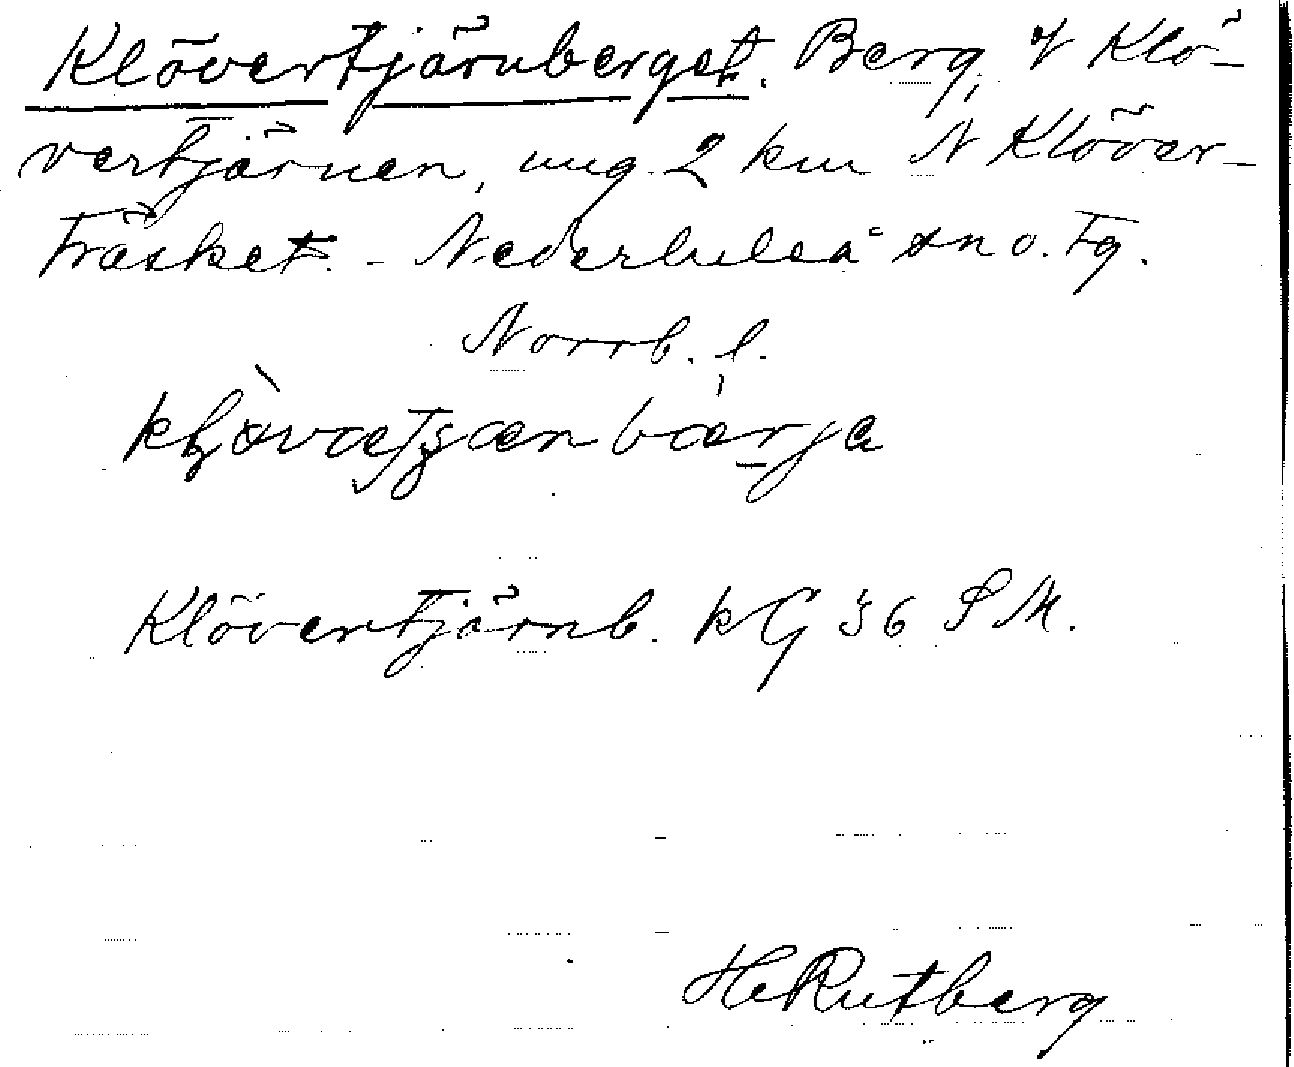 Klövertjärnberget. Berg, V Klö-
vertjärnen, ung. 2 km N Klöver-
träsket. - Nederluleå sn o. tg.
Norrb. l.
Klövertjärnb. kG 36 SM.
HeRutberg